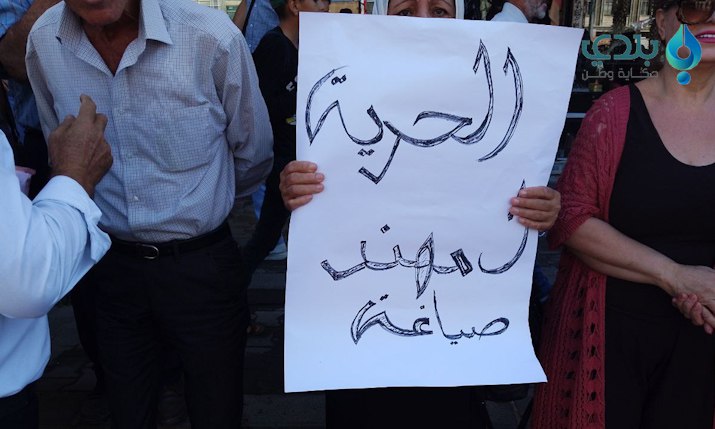 بلدي
حكاية وطن
الحرية
لـ مهند
صياغة